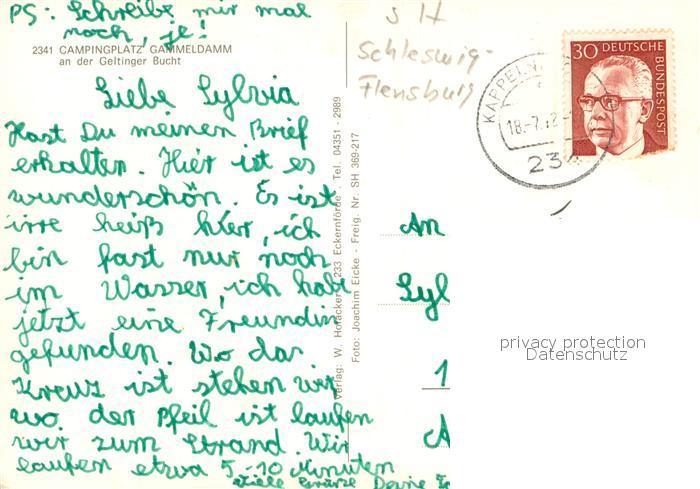 PS: Schreibe mir mal
noch, je!
2341 CAMPINGPLATZ GAMMELDAMM
an der Geltinger Bucht
Liebe Sylvia
Hast Du meinen Brief
erhalten. Hier ist es
wunderschön. Es ist
irre heiß hier, ich
bin fast nur noch
im Wasser, ich habe
jetzt eine Freundin
gefunden. Wo das
Kreuz ist stehen wir,
wo der Pfeil ist laufen
wir zum Strand. Wir
laufen etwa 5-10 Minuten
Viele Grüße Deine
Verlag: W. Hofäcker, 233 Eckernförde, Tel. 04351 - 2989
Foto: Joachim Eicke - Freig. Nr. SH 369-217
S H
Schleswig-
Flensburg
30 DEUTSCHE
BUNDESPOST
KAPPELN
18.-7.72
234
An
Syl
1
A
privacy protection
Datenschutz